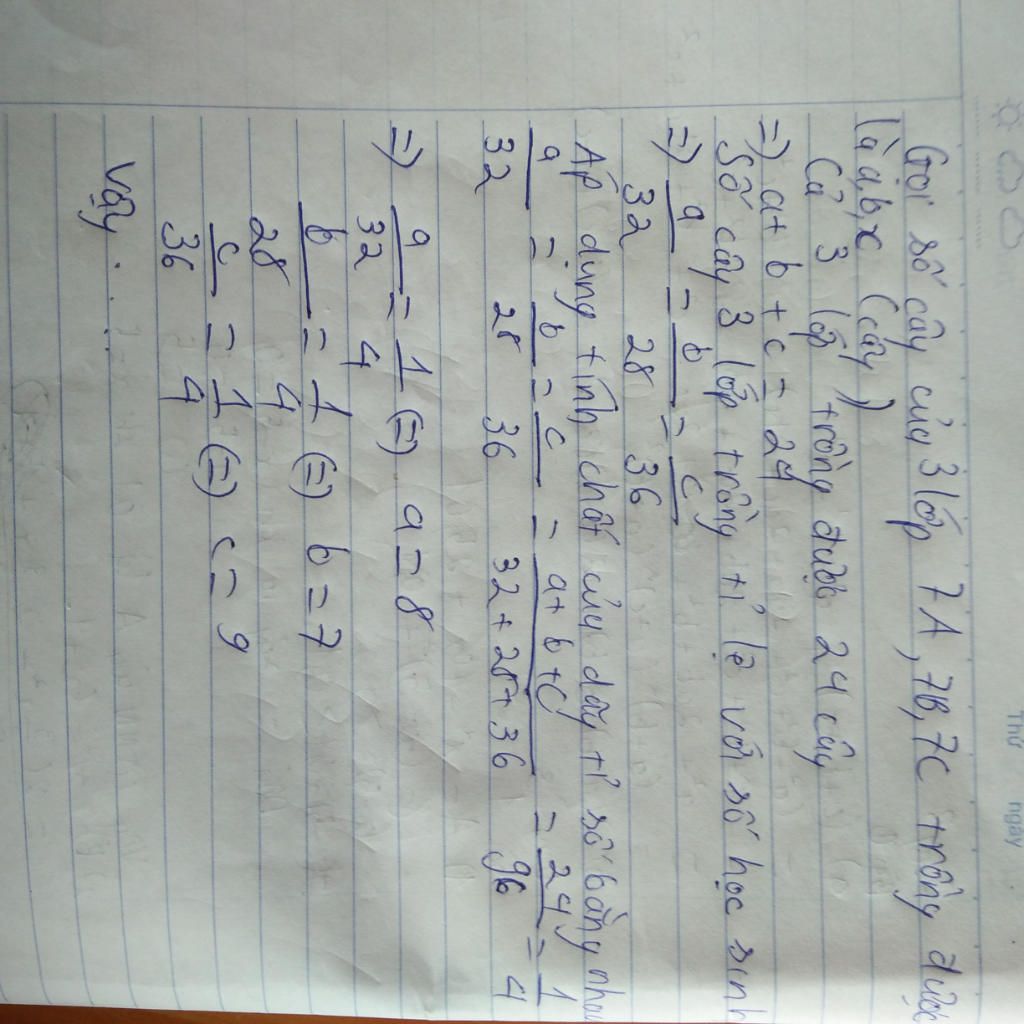 Thứ ngày
Gọi số cây của 3 lớp 7A, 7B, 7C trồng được
là a, b, c (cây)
Cả 3 lớp trồng được 24 cây
=) a + b + c = 24
Số cây 3 lớp trồng tỉ lệ với số học sinh
=) a/32 = b/28 = c/36
Áp dụng tính chất của dãy tỉ số bằng nhau
a/32 = b/28 = c/36 = a+b+c/32+28+36 = 24/96 = 1/4
=) a/32 = 1/4 (=) a = 8
b/28 = 1/4 (=) b = 7
c/36 = 1/4 (=) c = 9
Vậy . . . .